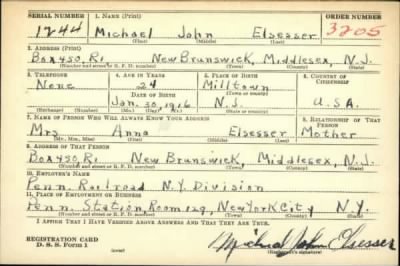 SERIAL NUMBER 1. NAME (Print) ORDER NUMBER
1244 Michael John Elsesser 3205
(First) (Middle) (Last)
2. ADDRESS (Print)
Box 450, R1 New Brunswick, Middlesex, N.J.
(Number and street or R. F. D. number) (Town) (County) (State)
3. TELEPHONE 4. AGE IN YEARS 5. PLACE OF BIRTH 6. COUNTRY OF CITIZENSHIP
None 24 Milltown
(Town or county)
DATE OF BIRTH
Jan. 30, 1916 N.J. U.S.A.
(Exchange) (Number) (Mo.) (Day) (Yr.) (State or country)
7. NAME OF PERSON WHO WILL ALWAYS KNOW YOUR ADDRESS 8. RELATIONSHIP OF THAT PERSON
Mrs Anna Elsesser Mother
(Mr., Mrs., Miss) (First) (Middle) (Last)
9. ADDRESS OF THAT PERSON
Box 450, R1 New Brunswick, Middlesex, N.J.
(Number and street or R. F. D. number) (Town) (County) (State)
10. EMPLOYER'S NAME
Penn. Railroad N.Y. Division
11. PLACE OF EMPLOYMENT OR BUSINESS
Penn. Station, New York City N.Y.
(Number and street or R. F. D. number) (Town) (County) (State)
I AFFIRM THAT I HAVE VERIFIED ABOVE ANSWERS AND THAT THEY ARE TRUE.
REGISTRATION CARD
D. S. S. Form 1 (over) Michael John Elsesser
(Registrant's signature)